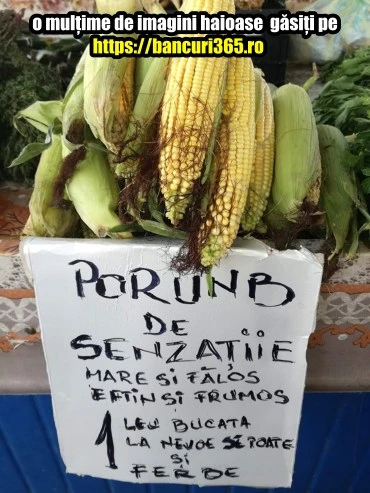 o mulțime de imagini haioase găsiți pe
https://bancuri365.ro
PORUNB
DE
SENZAȚIIE
MARE SI FĂLOS
EFTIN SI FRUMOS
1 LEU BUCATA
LA NEVOE SE POATE
SI
FERBE